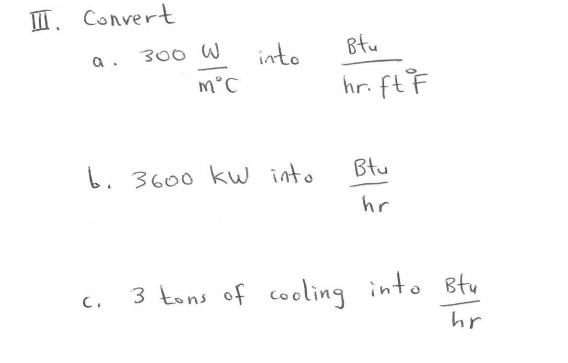 III. Convert
a. 300 W/m°C into Btu/hr. ft °F
b. 3600 kW into Btu/hr
c. 3 tons of cooling into Btu/hr